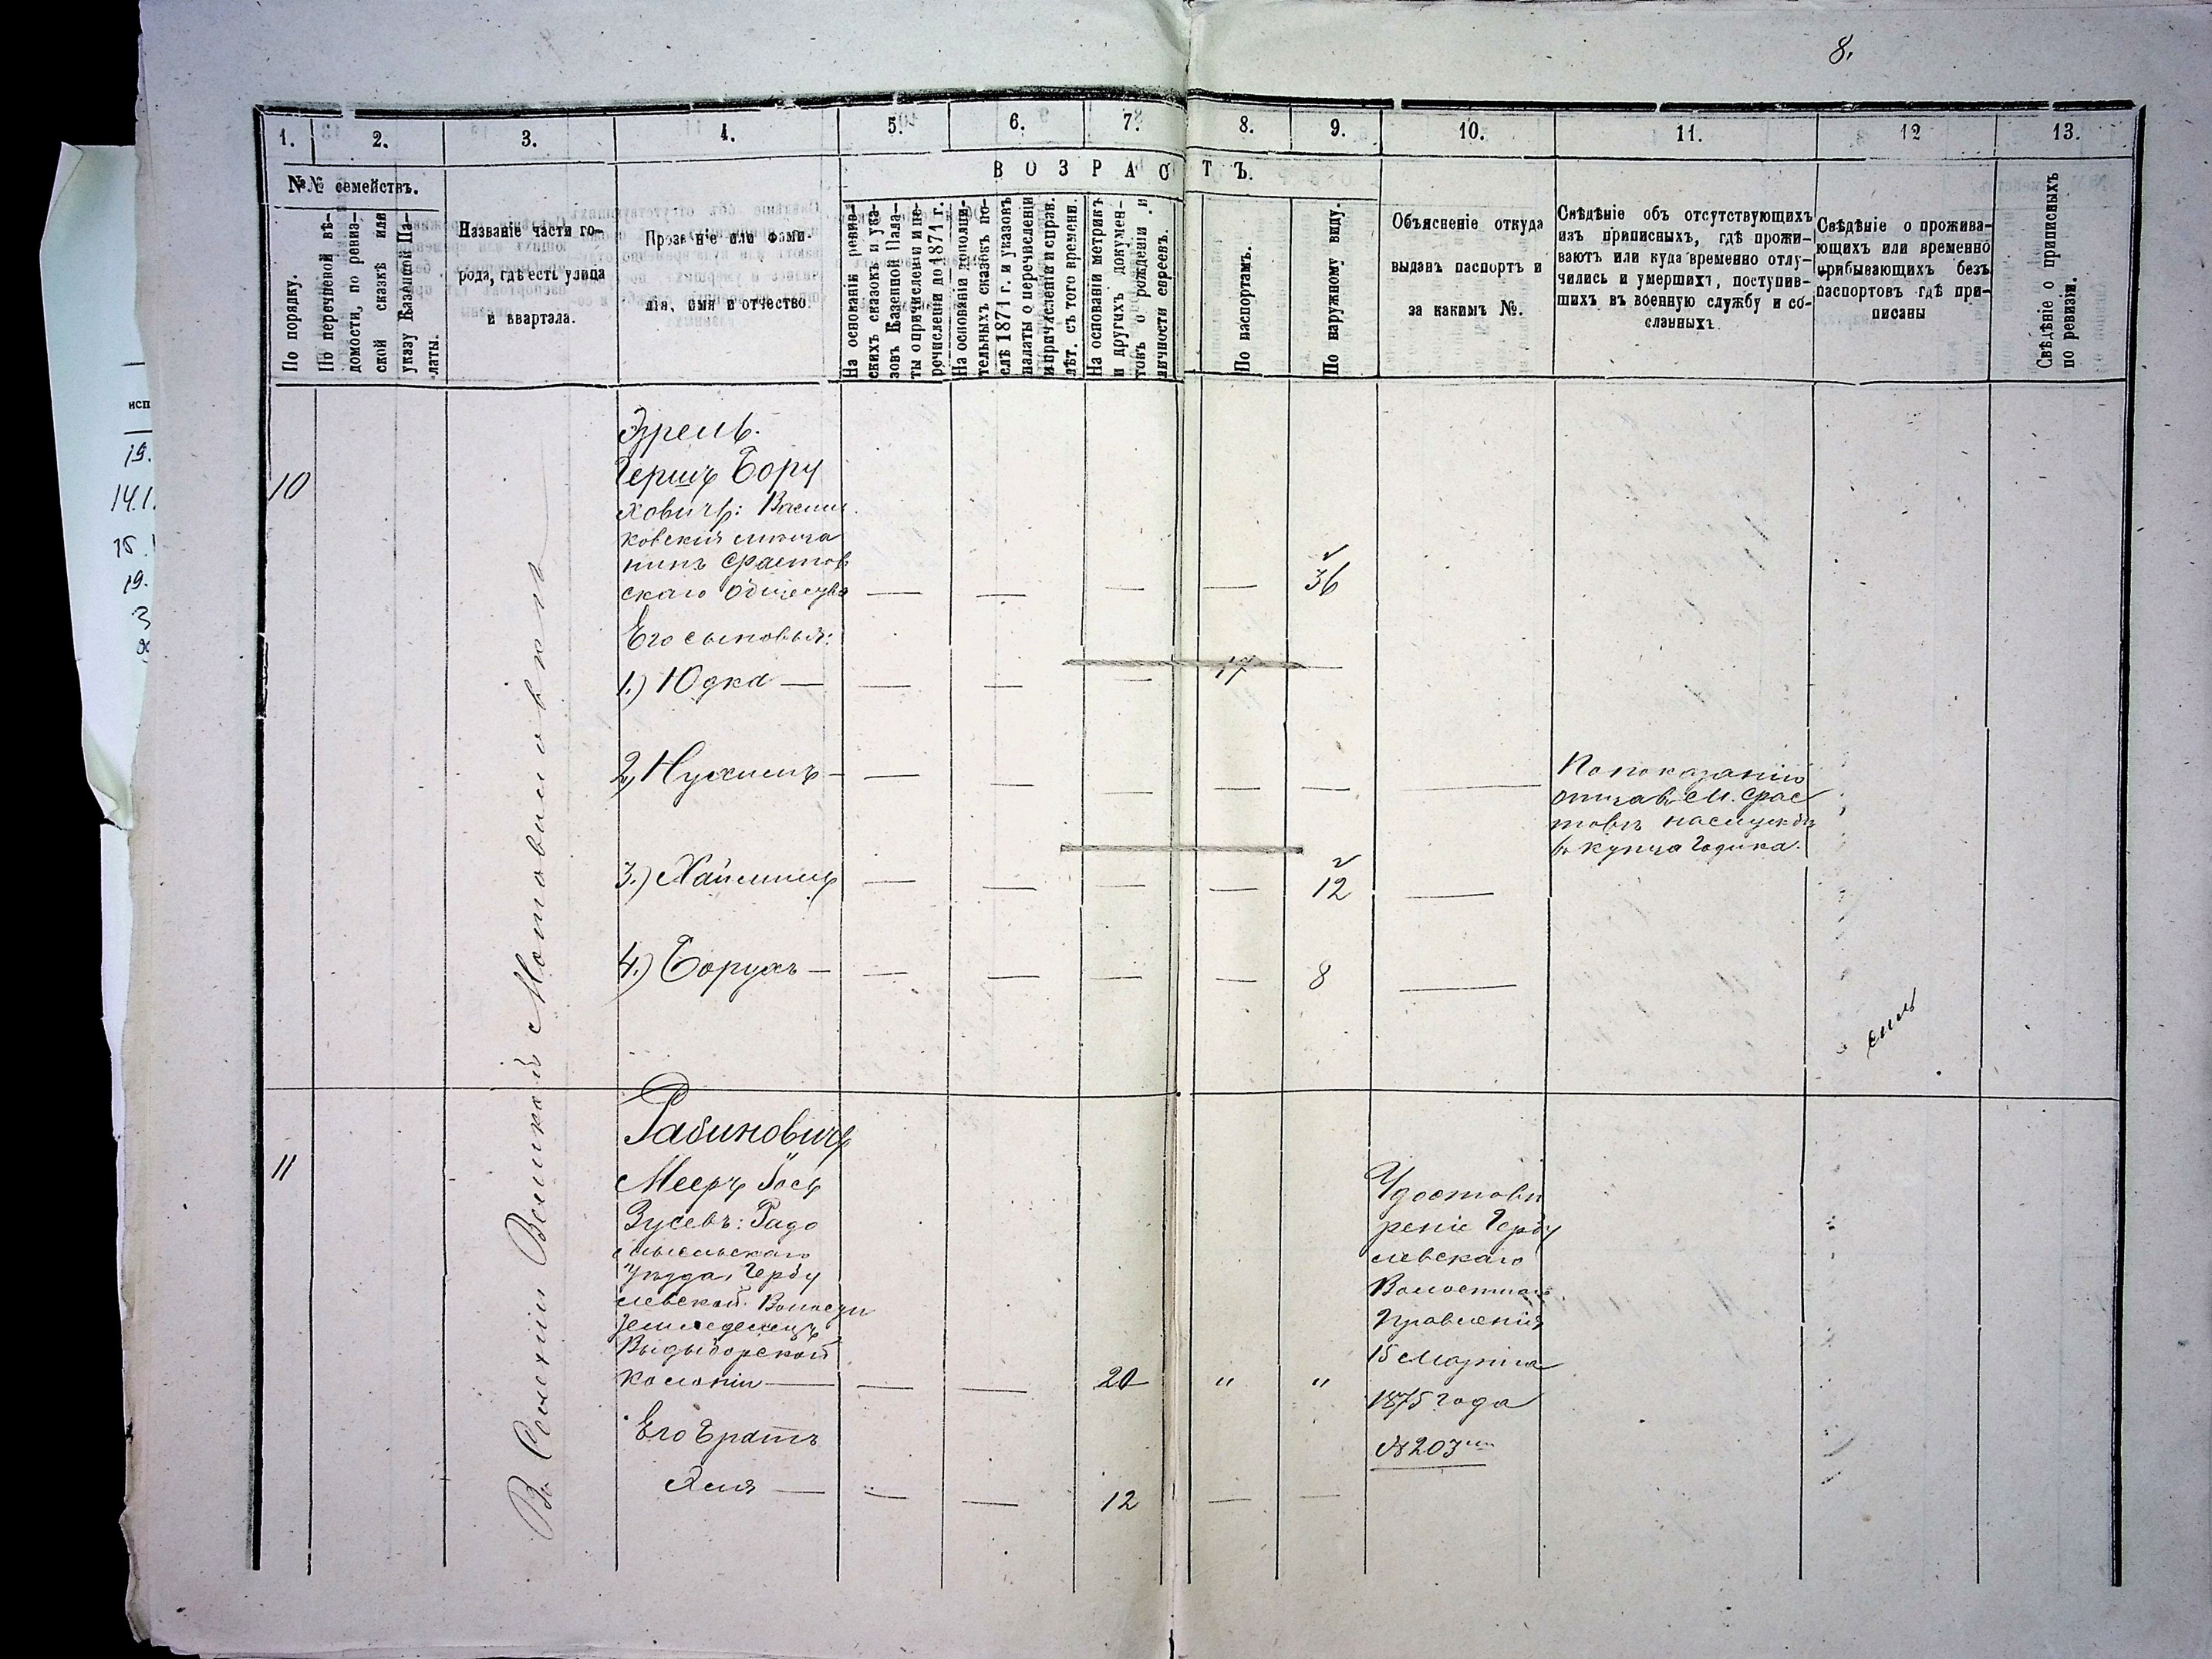 8.
1.
2.
3.
4.
5.
6.
7.
8.
9.
10.
11.
12
13.
№№ семействъ.
В О З Р А С Т Ъ.
По порядку.
По перечневой вѣ-
домости, по ревиз-
ской сказкѣ или
указу Казенной Па-
латы.
Названіе части го-
рода, гдѣ есть улица
и квартала.
Прозваніе или фами-
лія, имя и отчество
На основаніи ревиз-
скихъ сказокъ и ука-
зовъ Казенной Пала-
ты о причисленіи и пе-
речисленіи до 1871 г.
На основаніи дополни-
тельныхъ сказокъ по-
слѣ 1871 г. и указовъ
палаты о перечисленіи
и причисленіи и справ.
лѣт. съ того времени.
На основаніи метрикъ
и другихъ докумен-
товъ о рожденіи и
личности евреевъ.
По паспортамъ.
По наружному виду.
Объясненіе откуда
выданъ паспортъ и
за какимъ №.
Свѣдѣніе объ отсутствующихъ
изъ приписныхъ, гдѣ прожи-
ваютъ или куда временно отлу-
чились и умершихъ, поступив-
шихъ въ военную службу и со-
сланныхъ.
Свѣдѣніе о прожива-
ющихъ или временно
прибывающихъ безъ
паспортовъ гдѣ при-
писаны
Свѣдѣніе о приписныхъ
по ревизіи.
исп
19.
14.1.
19.
3
Въ Селеніи Великой Мотовиловкѣ
10
Эрель.
Гершъ Бору
ховичъ: Васил
ковскій мѣща
нинъ Фастов
скаго Общества — — — — 36
Его сыновья:
1.) Юдка — — — — 17 —
2) Нухимъ — — — — — — —
По показанію
отца въ м. Фас
товѣ на службѣ
у купца Годика.
3.) Хаймъ — — — — 12 —
4.) Борухъ — — — — — 8 —
11
Рабиновичъ
Мееръ Йось
Зусевъ: Радо
мысльскаго
Уѣзда, Горбу
левской Волости
земледелецъ
Выдыборской
колоніи — — — 20 " "
Удостовѣ
реніе Горбу
левскаго
Волостнаго
Правленія
15 Марта
1875 года
№ 203
Его братъ
— — — 12 — —